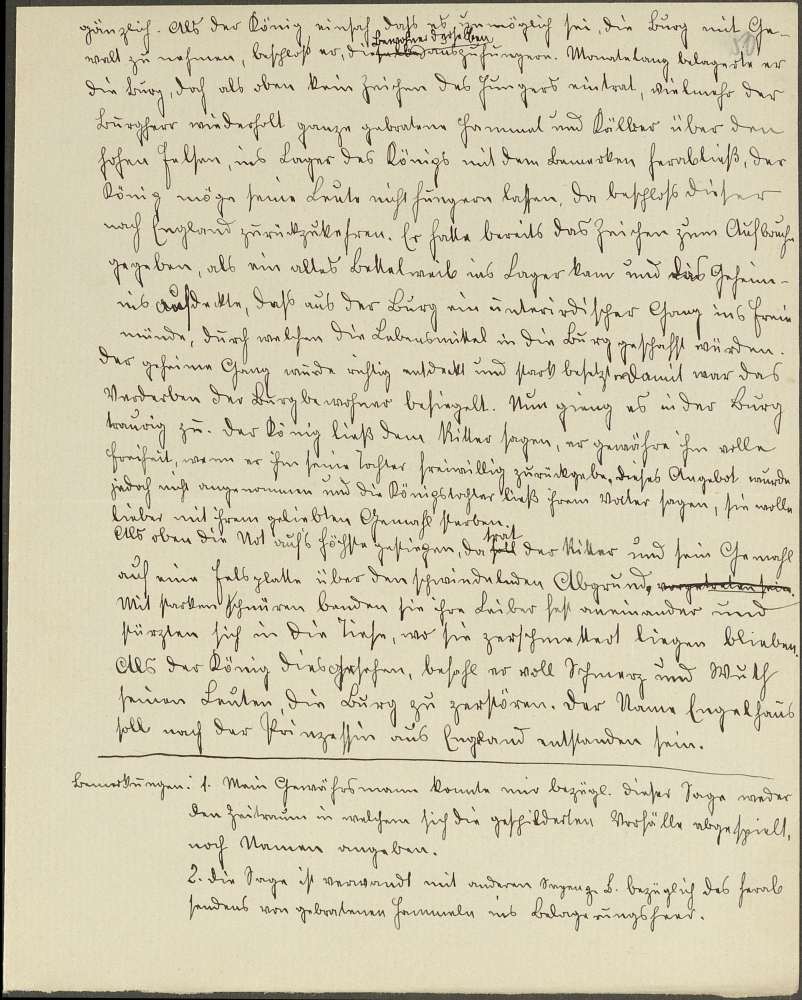 gänzlich. Als der König einsah, daß es unmöglich sei, die Burg mit Ge-
walt zu nehmen, beschloß er, die Bewohner derselben auszuhungern. Monatelang belagerte er
die Burg, doch als oben kein Zeichen des Hungers eintrat, vielmehr der
Burgherr wiederholt ganze gebratene Hammel und Kälber über den
hohen Felsen, ins Lager des Königs mit dem Bemerken herabließ, der
König möge seine Leute nicht hungern lassen, da beschloß dieser
nach England zurückzukehren. Er hatte bereits das Zeichen zum Aufbruche
gegeben, als ein altes Bettelweib ins Lager kam und das Geheim-
nis aufdeckte, daß aus der Burg ein unterirdischer Gang ins Freie
münde, durch welchen die Lebensmittel in die Burg geschafft würden.
Der geheime Gang wurde richtig entdeckt und stark besetzt. Damit war das
Verderben der Burgbewohner besiegelt. Nun gieng es in der Burg
traurig zu. Der König ließ dem Ritter sagen, er gewähre ihm volle
Freiheit, wenn er ihm seine Tochter freiwillig zurückgebe. Dieses Angebot wurde
jedoch nicht angenommen und die Königstochter ließ ihrem Vater sagen, sie wolle
lieber mit ihrem geliebten Gemahl sterben.
Als oben die Not aufs höchste gestiegen, da trat der Ritter und sein Gemahl
auf eine Felsplatte über den schwindelnden Abgrund, vorgetreten sein.
Mit starken Schnüren banden sie ihre Leiber fest aneinander und
stürzten sich in die Tiefe, wo sie zerschmettert liegen blieben.
Als der König dies gesehen, befahl er voll Schmerz und Wuth
seinen Leuten, die Burg zu zerstören. Der Name Engelhaus
soll nach der Prinzessin aus England entstanden sein.
Bemerkungen: 1. Mein Gewährsmann konnte mir bezügl. dieser Sage weder
den Zeitraum in welchem sich die geschilderten Vorfälle abgespielt,
noch Namen angeben.
2. Die Sage ist verwandt mit anderen Sagen z. B. bezüglich des Herab
sendens von gebratenen Hammeln ins Belagerungsheer.